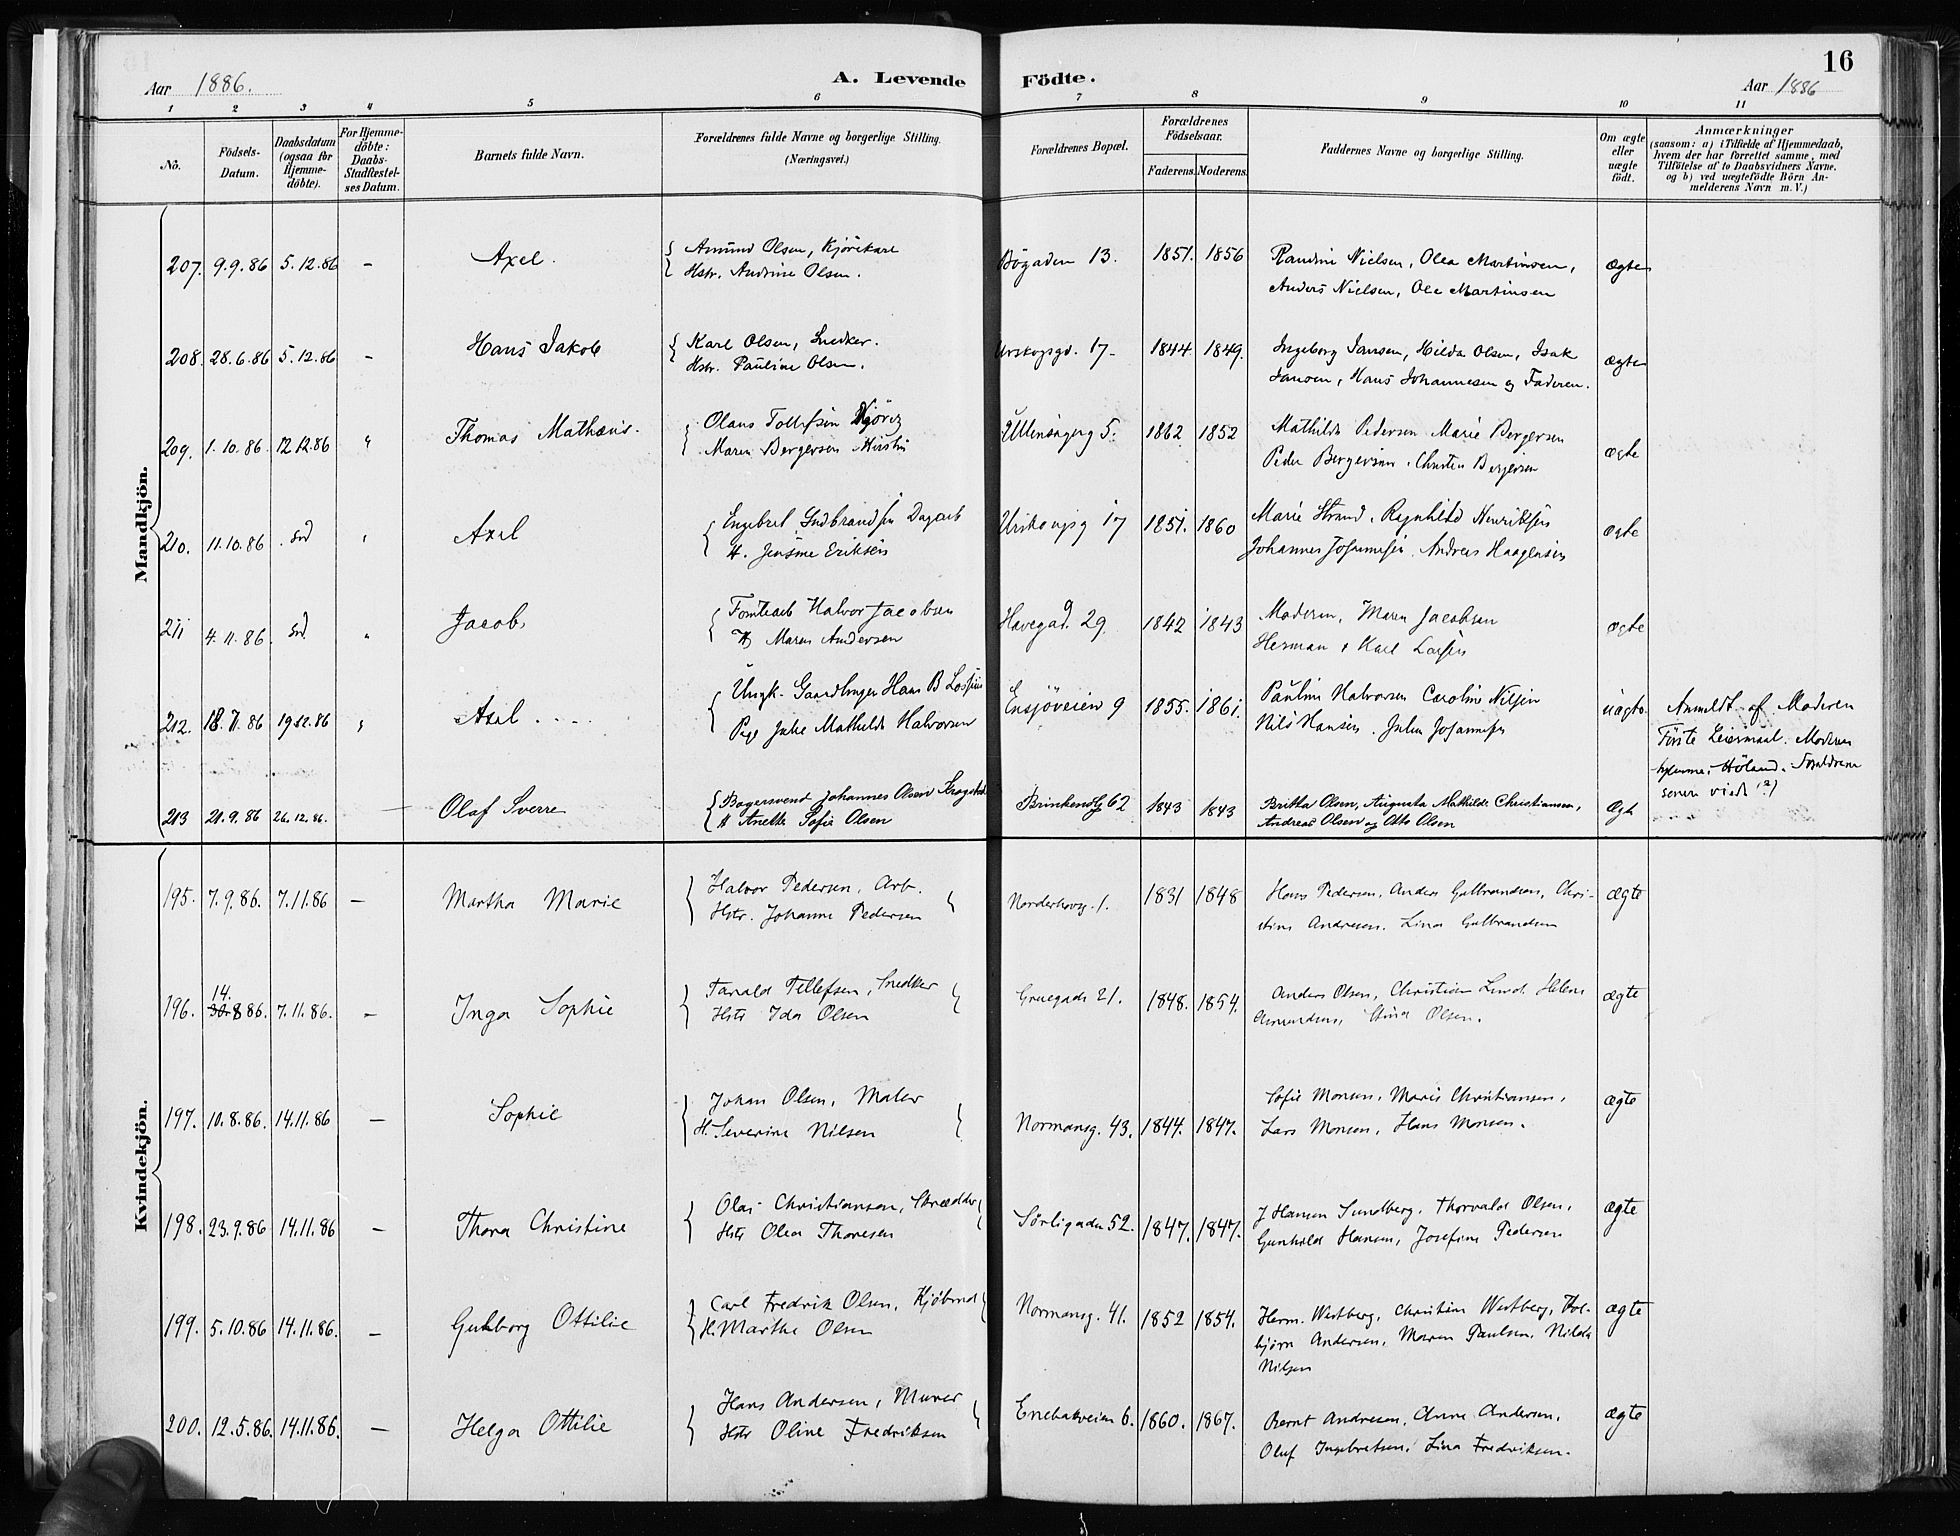 16
Aar 1886. A. Levende Födte. Aar 1886
1 2 3 4 5 6 7 8 9 10 11
No.
Födsels-
Datum.
Daabsdatum
(ogsaa for
Hjemme-
döbte).
For Hjemme-
döbte:
Daabs-
Stadfæstel-
ses Datum.
Barnets fulde Navn.
Forældrenes fulde Navne og borgerlige Stilling.
(Næringsvei.)
Forældrenes Bopæl.
Forældrenes
Födselsaar.
Faderens. Moderens.
Faddernes Navne og borgerlige Stilling.
Om ægte
eller
uægte
födt.
Anmærkninger
(saasom: a) i Tilfælde af Hjemmedaab,
hvem der har forrettet samme, med
Tilföielse af to Daabsvidners Navne.
og b) ved uægtefödte Börn An-
melderens Navn m. V.)
Mandkjön.
207. 9.9.86 5.12.86 – Axel.
Amund Olsen, Kjörekarl
Hstr. Andrine Olsen.
Bögaden 13. 1851. 1856
Randine Nielsen, Olea Martinsen,
Anders Nielsen, Ole Martinsen
ægte
208. 28.6.86 5.12.86 – Hans Jakob
Karl Olsen, Snedker.
Hstr. Pauline Olsen.
Urskogsgd. 17. 1844. 1849.
Ingeborg Jansen, Hilda Olsen, Isak
Jansen, Hans Johannesen og Faderen.
ægte
209. 1.10.86 12.12.86 " Thomas Mathæus.
Olaus Tollefsen
Maren Bergersen Hustru
Ullensagerg 5. 1862 1852
Mathilde Pedersen Marie Bergersen
Peder Bergersen. Christen Bergersen
ægte
210. 11.10.86 " Axel
Engebret Gudbrandsen Dagarb
H. Jensine Eriksen
Urskougsg 17 1851. 1860
Marie Strand, Ragnhild Henriksen
Johannes Johannesen. Andreas Haagensen
ægte
211 4.11.86 " Jacob,
Halvor Jacobsen
H Maren Andersen
Havegad. 29. 1842 1843
Moderen, Maren Jacobsen
Herman & Karl Larsen
ægte
212. 18.7.86 19.12.86 " Axel....
Ungk. Hans B
Pige Julie Mathilde Halvorsen
Ensjöveien 9 1855. 1861.
Pauline Halvorsen Caroline Nilsen
Nils Hansen. Julius Johannesen
uægte.
Anmeldt af Moderen
Förste Leiermaal. Moderen
hjemme i Höland. Forældrene
senere viede (?)
213 21.9.86 26.12.86. – Olaf Sverre
Bagersvend Johannes Olsen
H Anette Sofie Olsen
Brinkensg 62 1843 1843
Britha Olsen, Augusta Mathilde Christiansen,
Andreas Olsen og Otto Olsen
Ægte
Kvindekjön.
195. 7.9.86. 7.11.86 – Martha Marie
Halvor Pedersen, Arb.
Hstr. Johanne Pedersen
Norderhovg. 1. 1831 1848
Hans Pedersen, Anders Gulbrandsen, Chri-
stine Andresen. Lina Gulbrandsen
ægte
196. 14.
30.8 86. 7.11.86. – Inga Sophie
Tarald Tellefsen, Snedker
Hstr Ida Olsen
Gruegade 21. 1848. 1854.
Anders Olsen, Christian Lund. Helene
Amundsen, Stina Olsen.
ægte
197. 10.8.86. 14.11.86 – Sophie
Johan Olsen, Maler
H. Severine Nilsen
Normansg. 43. 1844. 1847.
Sofie Monsen, Marie Christiansen,
Lars Monsen, Hans Monsen.
ægte
198. 23.9.86 14.11.86 – Thora Christine
Olaf Christiansen, Skrædder
Hstr Olea Thoresen
Sörligaden 52. 1847. 1847.
J Hansen Sundberg. Thorvald Olsen,
Gunhild Hansen, Josefine Pedersen
ægte
199. 5.10.86 14.11.86. – Gulborg Ottilie
Carl Fredrik Olsen, Kjöbmd
H. Marthe Olsen
Normansg. 41. 1852 1854.
Herm. Westberg, Christine Westberg, Tor-
björn Andersen, Maren Paulsen. Nilda
Nilsen
ægte
200. 12.5.86. 14.11.86. – Helga Ottilie
Hans Andersen, Murer
Hstr Oline Fredriksen
Enebakveien 6. 1860. 1867.
Bernt Andresen, Anne Andersen,
Oluf Ingebretsen, Lina Fredriksen.
ægte